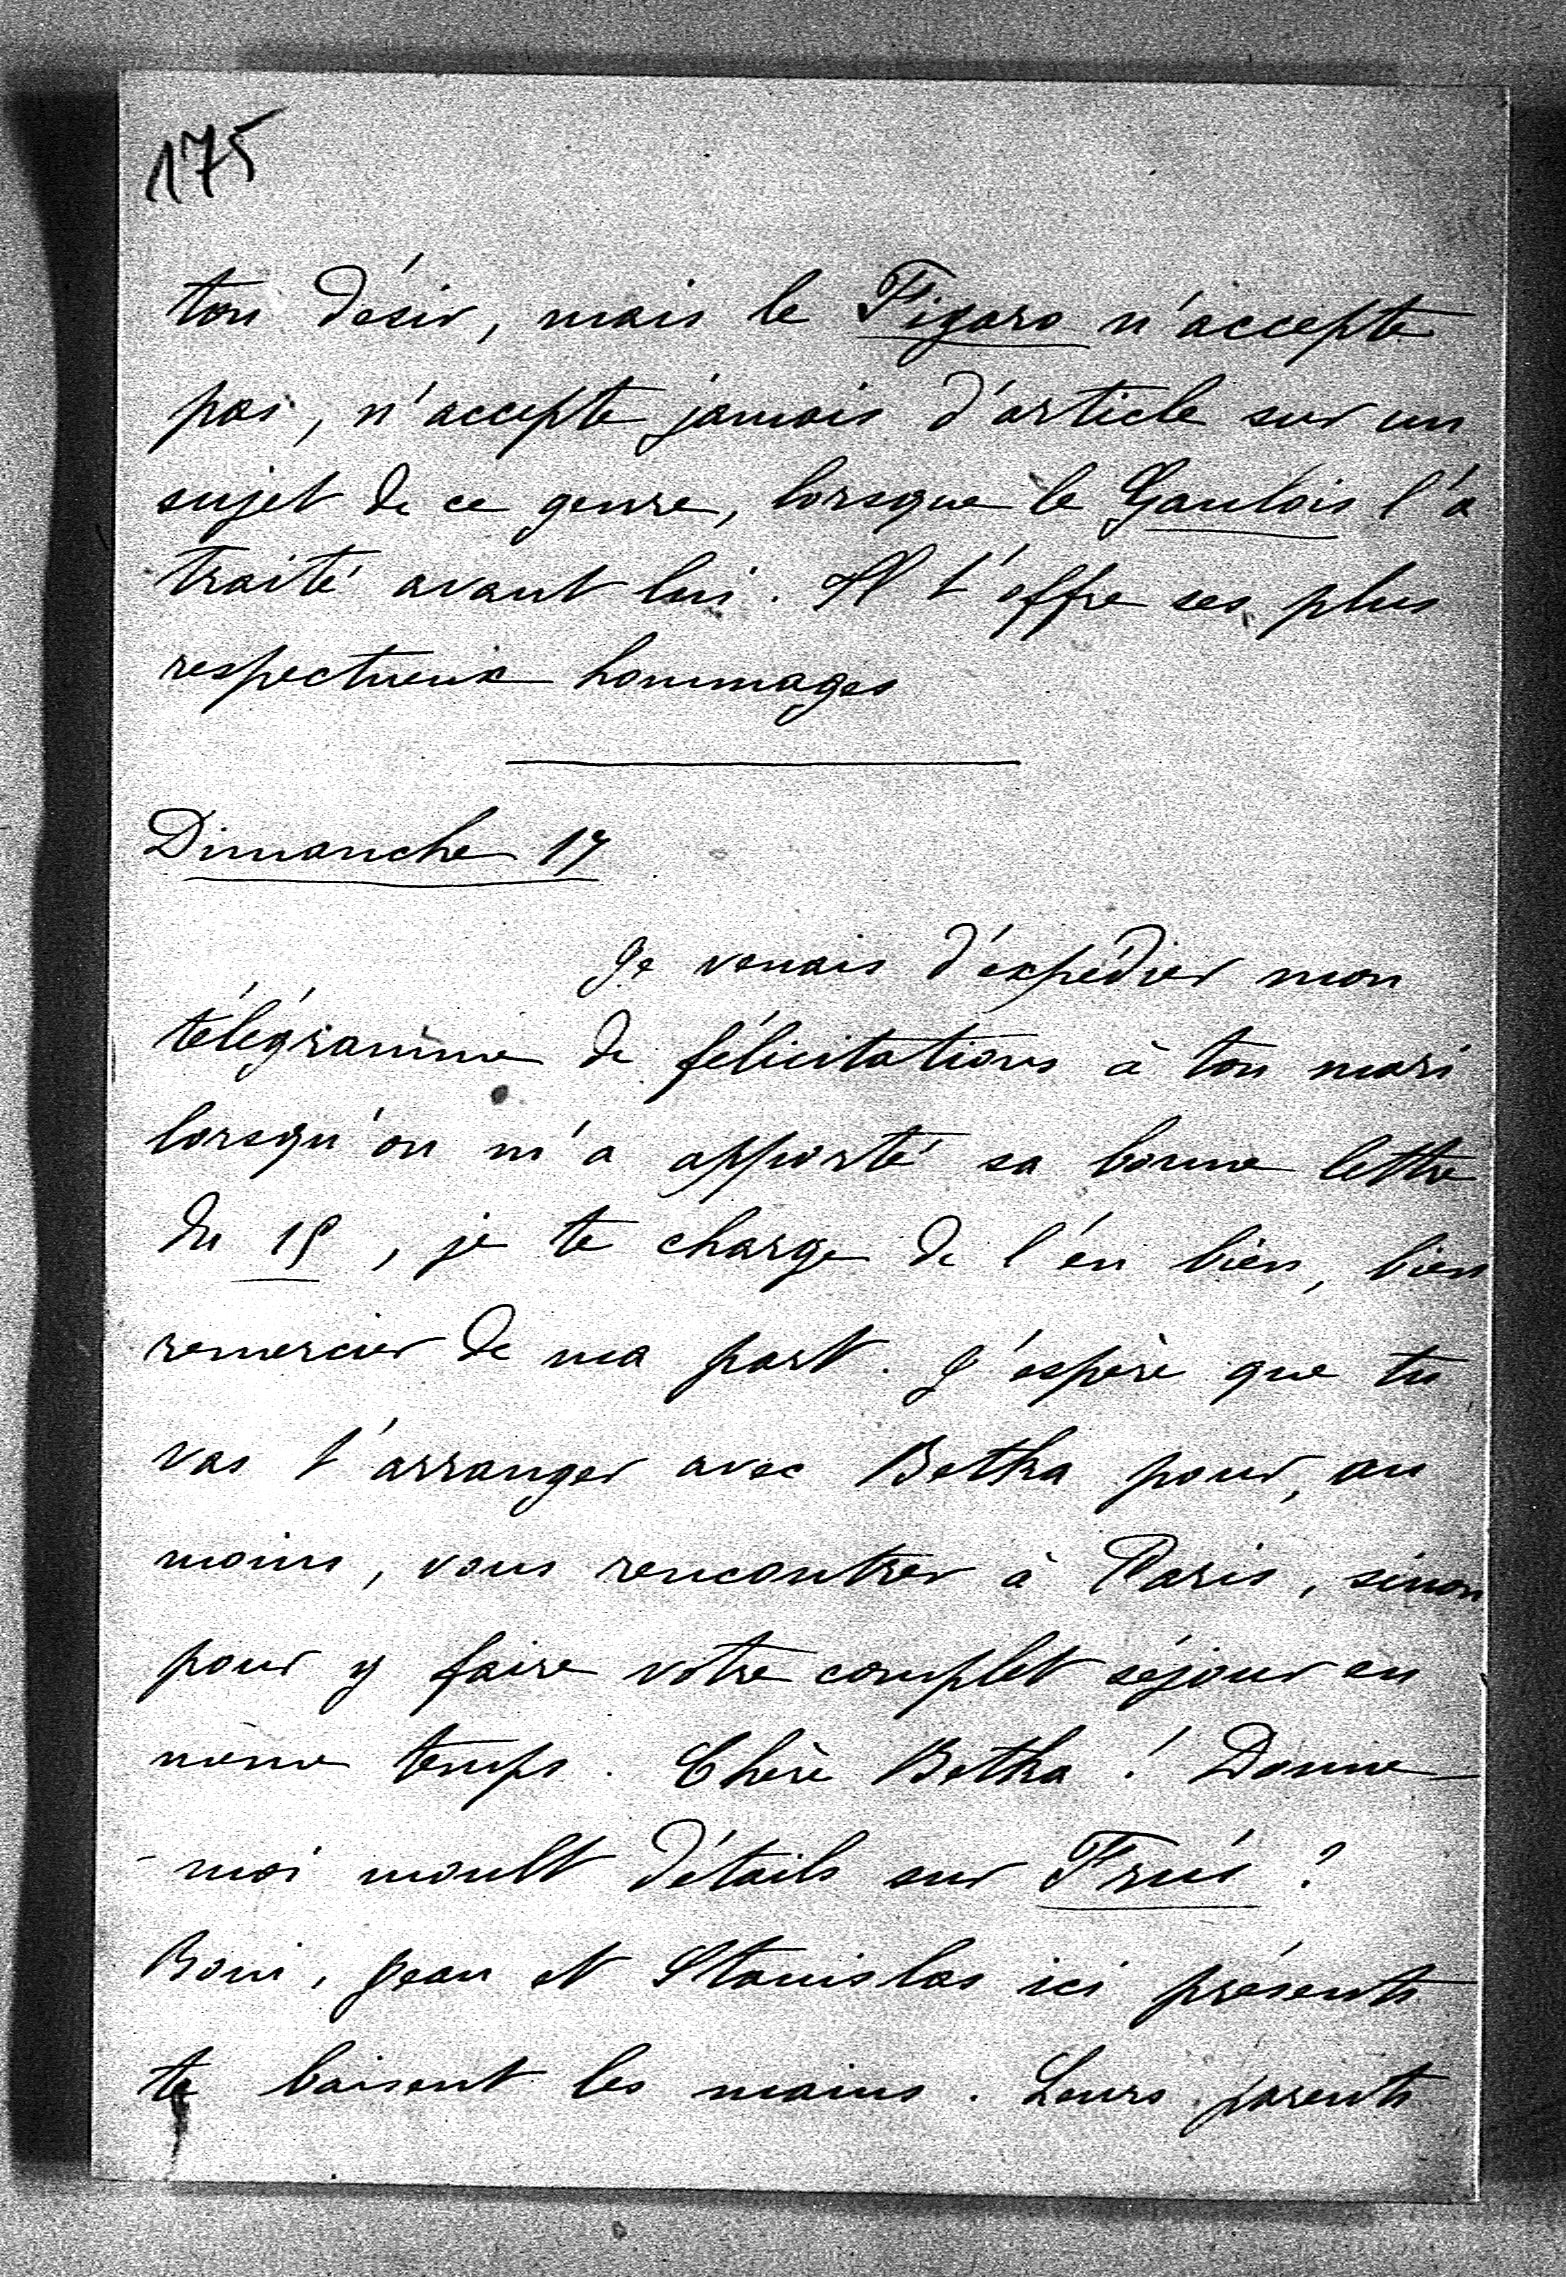 175
ton désir, mais le Figaro n'accepte
pas, n'accepte jamais d'article sur un
sujet de ce genre, lorsque le Gaulois l'a
traité avant lui. Il t'offre ses plus
respectueux hommages
Dimanche 17
Je venais d'expédier mon
télégramme de félicitations à ton mari
lorsqu'on m'a apporté sa bonne lettre
du 15, je te charge de l'en bien, bien
remercier de ma part. J'espère que tu
vas t'arranger avec Betka pour, au
moins, vous rencontrer à Paris, sinon
pour y faire votre complet séjour en
même temps. Chère Betka! Donne
-moi moult détails sur
Boni, Jean et Stanislas ici présents
te baisent les mains. Leurs parents